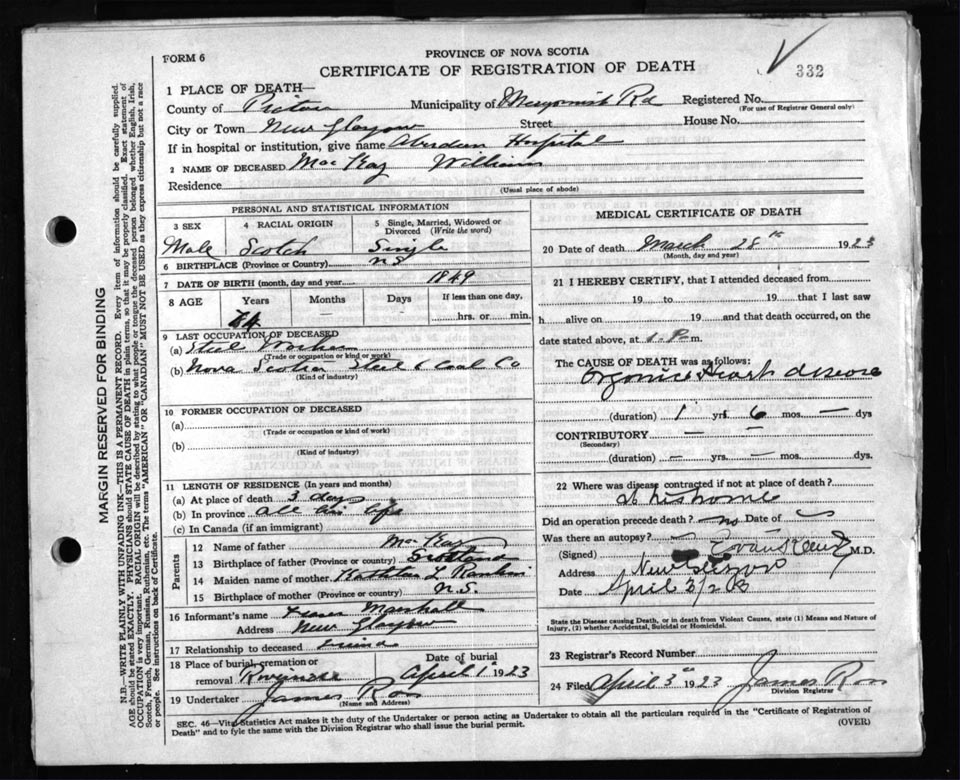 FORM 6
PROVINCE OF NOVA SCOTIA
CERTIFICATE OF REGISTRATION OF DEATH
332
1 PLACE OF DEATH—
County of Pictou Municipality of Merigomish Rd Registered No.
(For use of Registrar General only)
City or Town New Glasgow Street House No.
If in hospital or institution, give name Aberdeen Hospital
2 NAME OF DECEASED MacKay William
Residence
(Usual place of abode)
PERSONAL AND STATISTICAL INFORMATION
3 SEX 4 RACIAL ORIGIN 5 Single, Married, Widowed or Divorced (Write the word)
Male Scotch Single
6 BIRTHPLACE (Province or Country) N.S.
7 DATE OF BIRTH (month, day and year) 1849
8 AGE Years Months Days If less than one day,
74 — — hrs. or min.
9 LAST OCCUPATION OF DECEASED
(a) Steel Worker
(Trade or occupation or kind of work)
(b) Nova Scotia Steel & Coal Co
(Kind of industry)
10 FORMER OCCUPATION OF DECEASED
(a)
(Trade or occupation or kind of work)
(b)
(Kind of industry)
11 LENGTH OF RESIDENCE (In years and months)
(a) At place of death 3 days
(b) In province all his life
(c) In Canada (if an immigrant)
Parents
12 Name of father MacKay
13 Birthplace of father (Province or country) Scotland
14 Maiden name of mother L
15 Birthplace of mother (Province or country) N.S.
16 Informant's name Marshall
Address New Glasgow
17 Relationship to deceased
18 Place of burial, cremation or removal Date of burial
April 1 1923
19 Undertaker James Ross
(Name and Address)
MEDICAL CERTIFICATE OF DEATH
20 Date of death March 28th 1923
(Month, day and year)
21 I HEREBY CERTIFY, that I attended deceased from
19 to 19 that I last saw
h alive on 19 and that death occurred, on
date stated above, at 1 P m.
The CAUSE OF DEATH was as follows:
Organic Heart disease
(duration) 1 yrs 6 mos. — dys
CONTRIBUTORY — —
(Secondary)
(duration) — yrs. — mos. dys.
22 Where was disease contracted if not at place of death?
at his home
Did an operation precede death? no Date of
Was there an autopsy?
(Signed) M.D.
Address New Glasgow
Date April 3/23
State the Disease causing Death, or in death from Violent Causes, state (1) Means and Nature of
Injury, (2) whether Accidental, Suicidal or Homicidal.
23 Registrar's Record Number
24 Filed April 3rd 1923 James Ross
Division Registrar
SEC. 46—Vital Statistics Act makes it the duty of the Undertaker or person acting as Undertaker to obtain all the particulars required in the "Certificate of Registration of
Death" and to fyle the same with the Division Registrar who shall issue the burial permit.
(OVER)
MARGIN RESERVED FOR BINDING
N.B.—WRITE PLAINLY WITH UNFADING INK—THIS IS A PERMANENT RECORD. Every item of information should be carefully supplied.
AGE should be stated EXACTLY. PHYSICIANS should STATE CAUSE OF DEATH in plain terms, so that it may be properly classified. Exact statement of
OCCUPATION is very important. RACIAL ORIGIN will be described by stating to what people or tongue the deceased person belonged whether English, Irish,
Scotch, French, German, Russian, Ruthenian, etc. The terms "AMERICAN" OR "CANADIAN" MUST NOT BE USED as they express citizenship but not a race
or people. See instructions on back of Certificate.